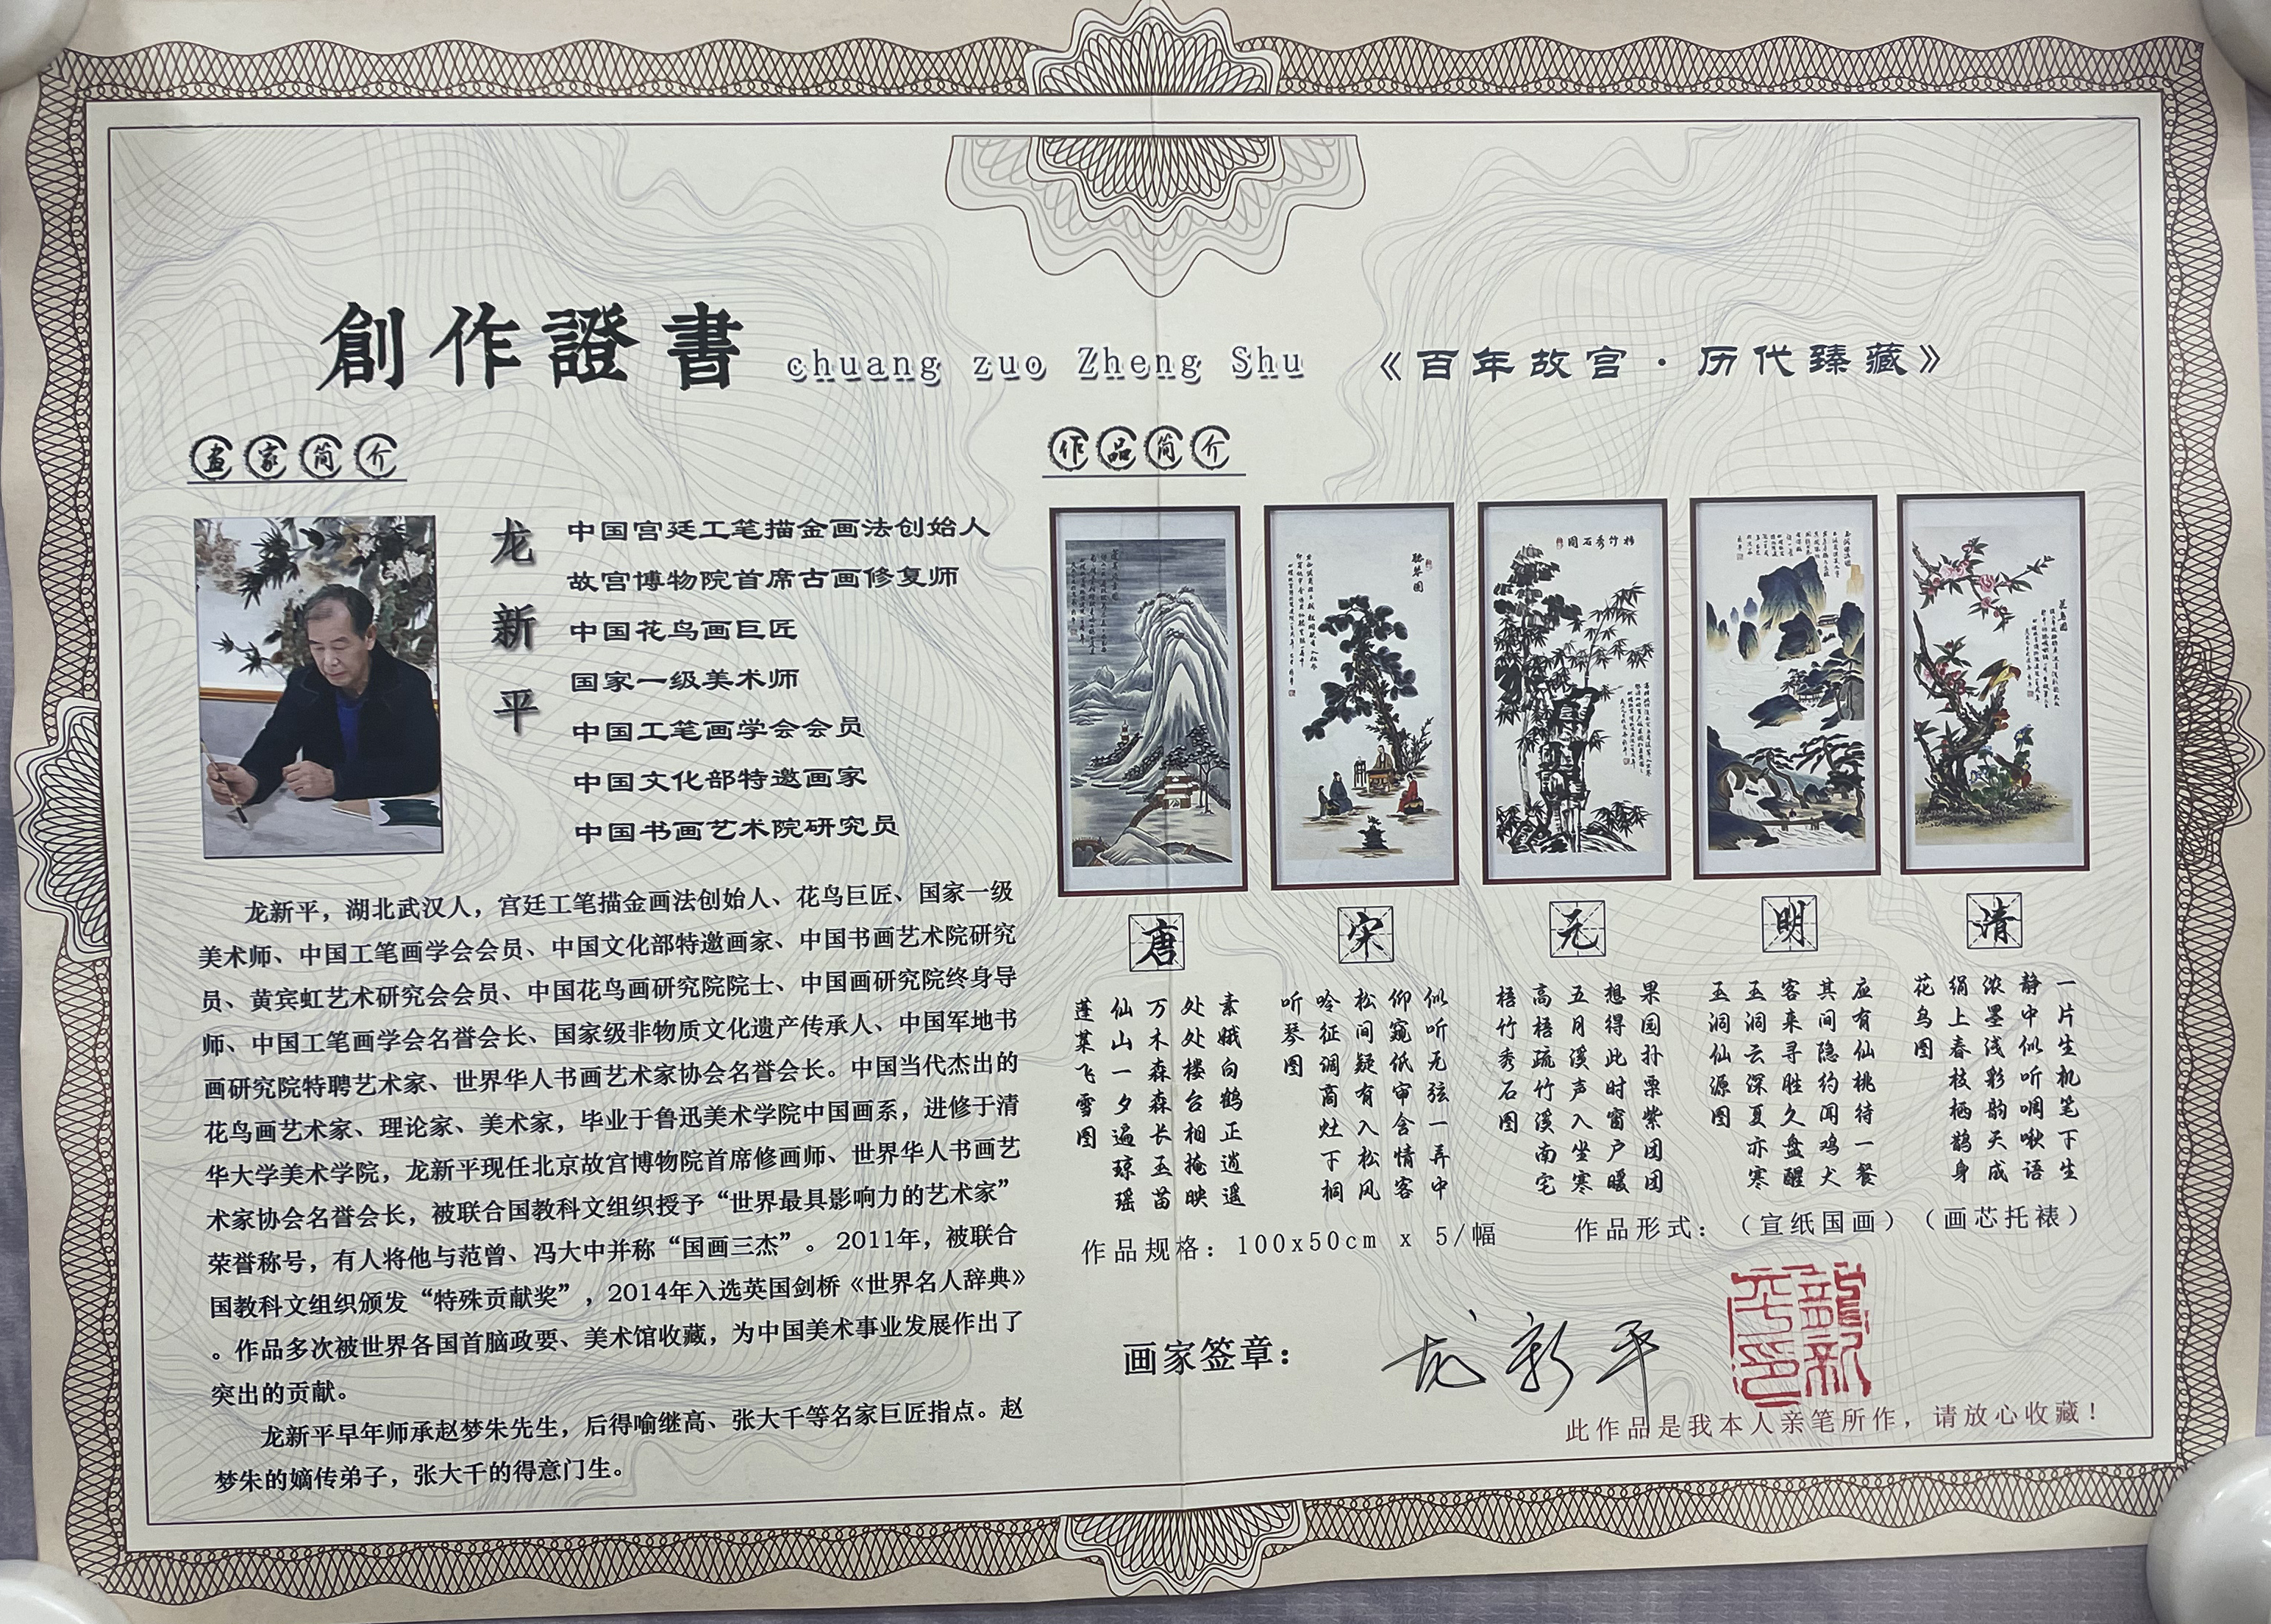 創作證書 chuang zuo Zheng Shu 《百年故宫·历代臻藏》
画家简介
龙新平
中国宫廷工笔描金画法创始人
故宫博物院首席古画修复师
中国花鸟画巨匠
国家一级美术师
中国工笔画学会会员
中国文化部特邀画家
中国书画艺术院研究员
龙新平，湖北武汉人，宫廷工笔描金画法创始人、花鸟巨匠、国家一级
美术师、中国工笔画学会会员、中国文化部特邀画家、中国书画艺术院研究
员、黄宾虹艺术研究会会员、中国花鸟画研究院院士、中国画研究院终身导
师、中国工笔画学会名誉会长、国家级非物质文化遗产传承人、中国军地书
画研究院特聘艺术家、世界华人书画艺术家协会名誉会长。中国当代杰出的
花鸟画艺术家、理论家、美术家，毕业于鲁迅美术学院中国画系，进修于清
华大学美术学院，龙新平现任北京故宫博物院首席修画师、世界华人书画艺
术家协会名誉会长，被联合国教科文组织授予“世界最具影响力的艺术家”
荣誉称号，有人将他与范曾、冯大中并称“国画三杰”。 2011年，被联合
国教科文组织颁发“特殊贡献奖”，2014年入选英国剑桥《世界名人辞典》
。作品多次被世界各国首脑政要、美术馆收藏，为中国美术事业发展作出了
突出的贡献。
龙新平早年师承赵梦朱先生，后得喻继高、张大千等名家巨匠指点。赵
梦朱的嫡传弟子，张大千的得意门生。
作品简介
聽琴图
梧竹秀石图
花鸟图
唐
蓬莱飞雪图
仙山一夕遍琼瑶
万木森森长玉苗
处处楼台相掩映
素娥向鹤正逍遥
宋
听琴图
吟征调商灶下桐
松间疑有入松风
仰窥低审含情客
似听无弦一弄中
元
梧竹秀石图
高梧疏竹溪南宅
五月溪声入坐寒
想得此时窗户暖
果园扑栗紫团团
明
玉洞仙源图
玉洞云深夏亦寒
客来寻胜久盘醒
其间隐约闻鸡犬
应有仙桃待一餐
清
花鸟图
绢上春枝栖鹊身
浓墨浅彩韵天成
静中似听啁啾语
一片生机笔下生
作品规格：100x50cm x 5/幅
作品形式：（宣纸国画）（画芯托裱）
画家签章：
龙新平
龍新平印
此作品是我本人亲笔所作，请放心收藏！